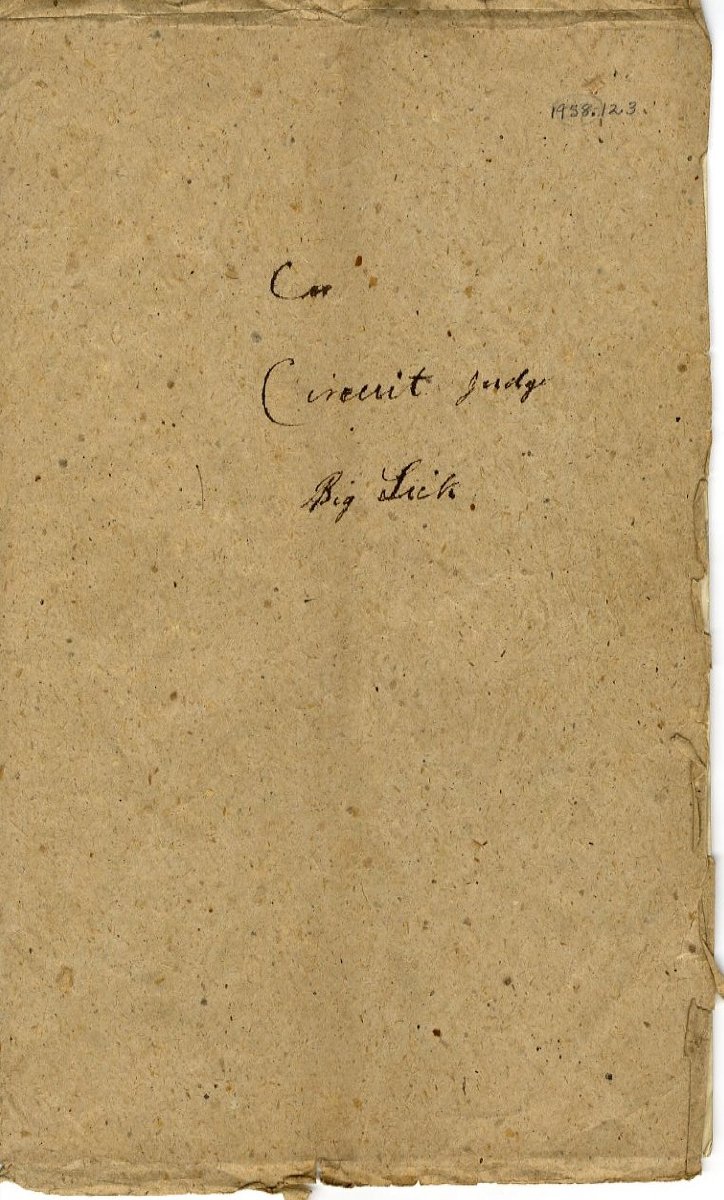 1938.123.
Circuit judge
Big Lick